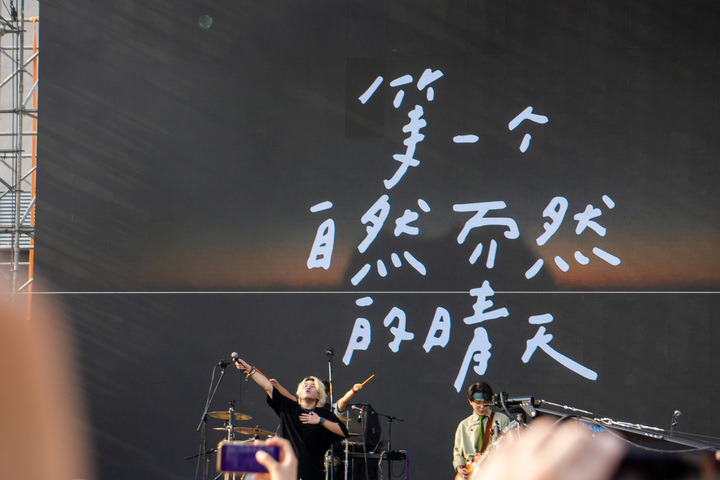 第一个
自然而然
的晴天